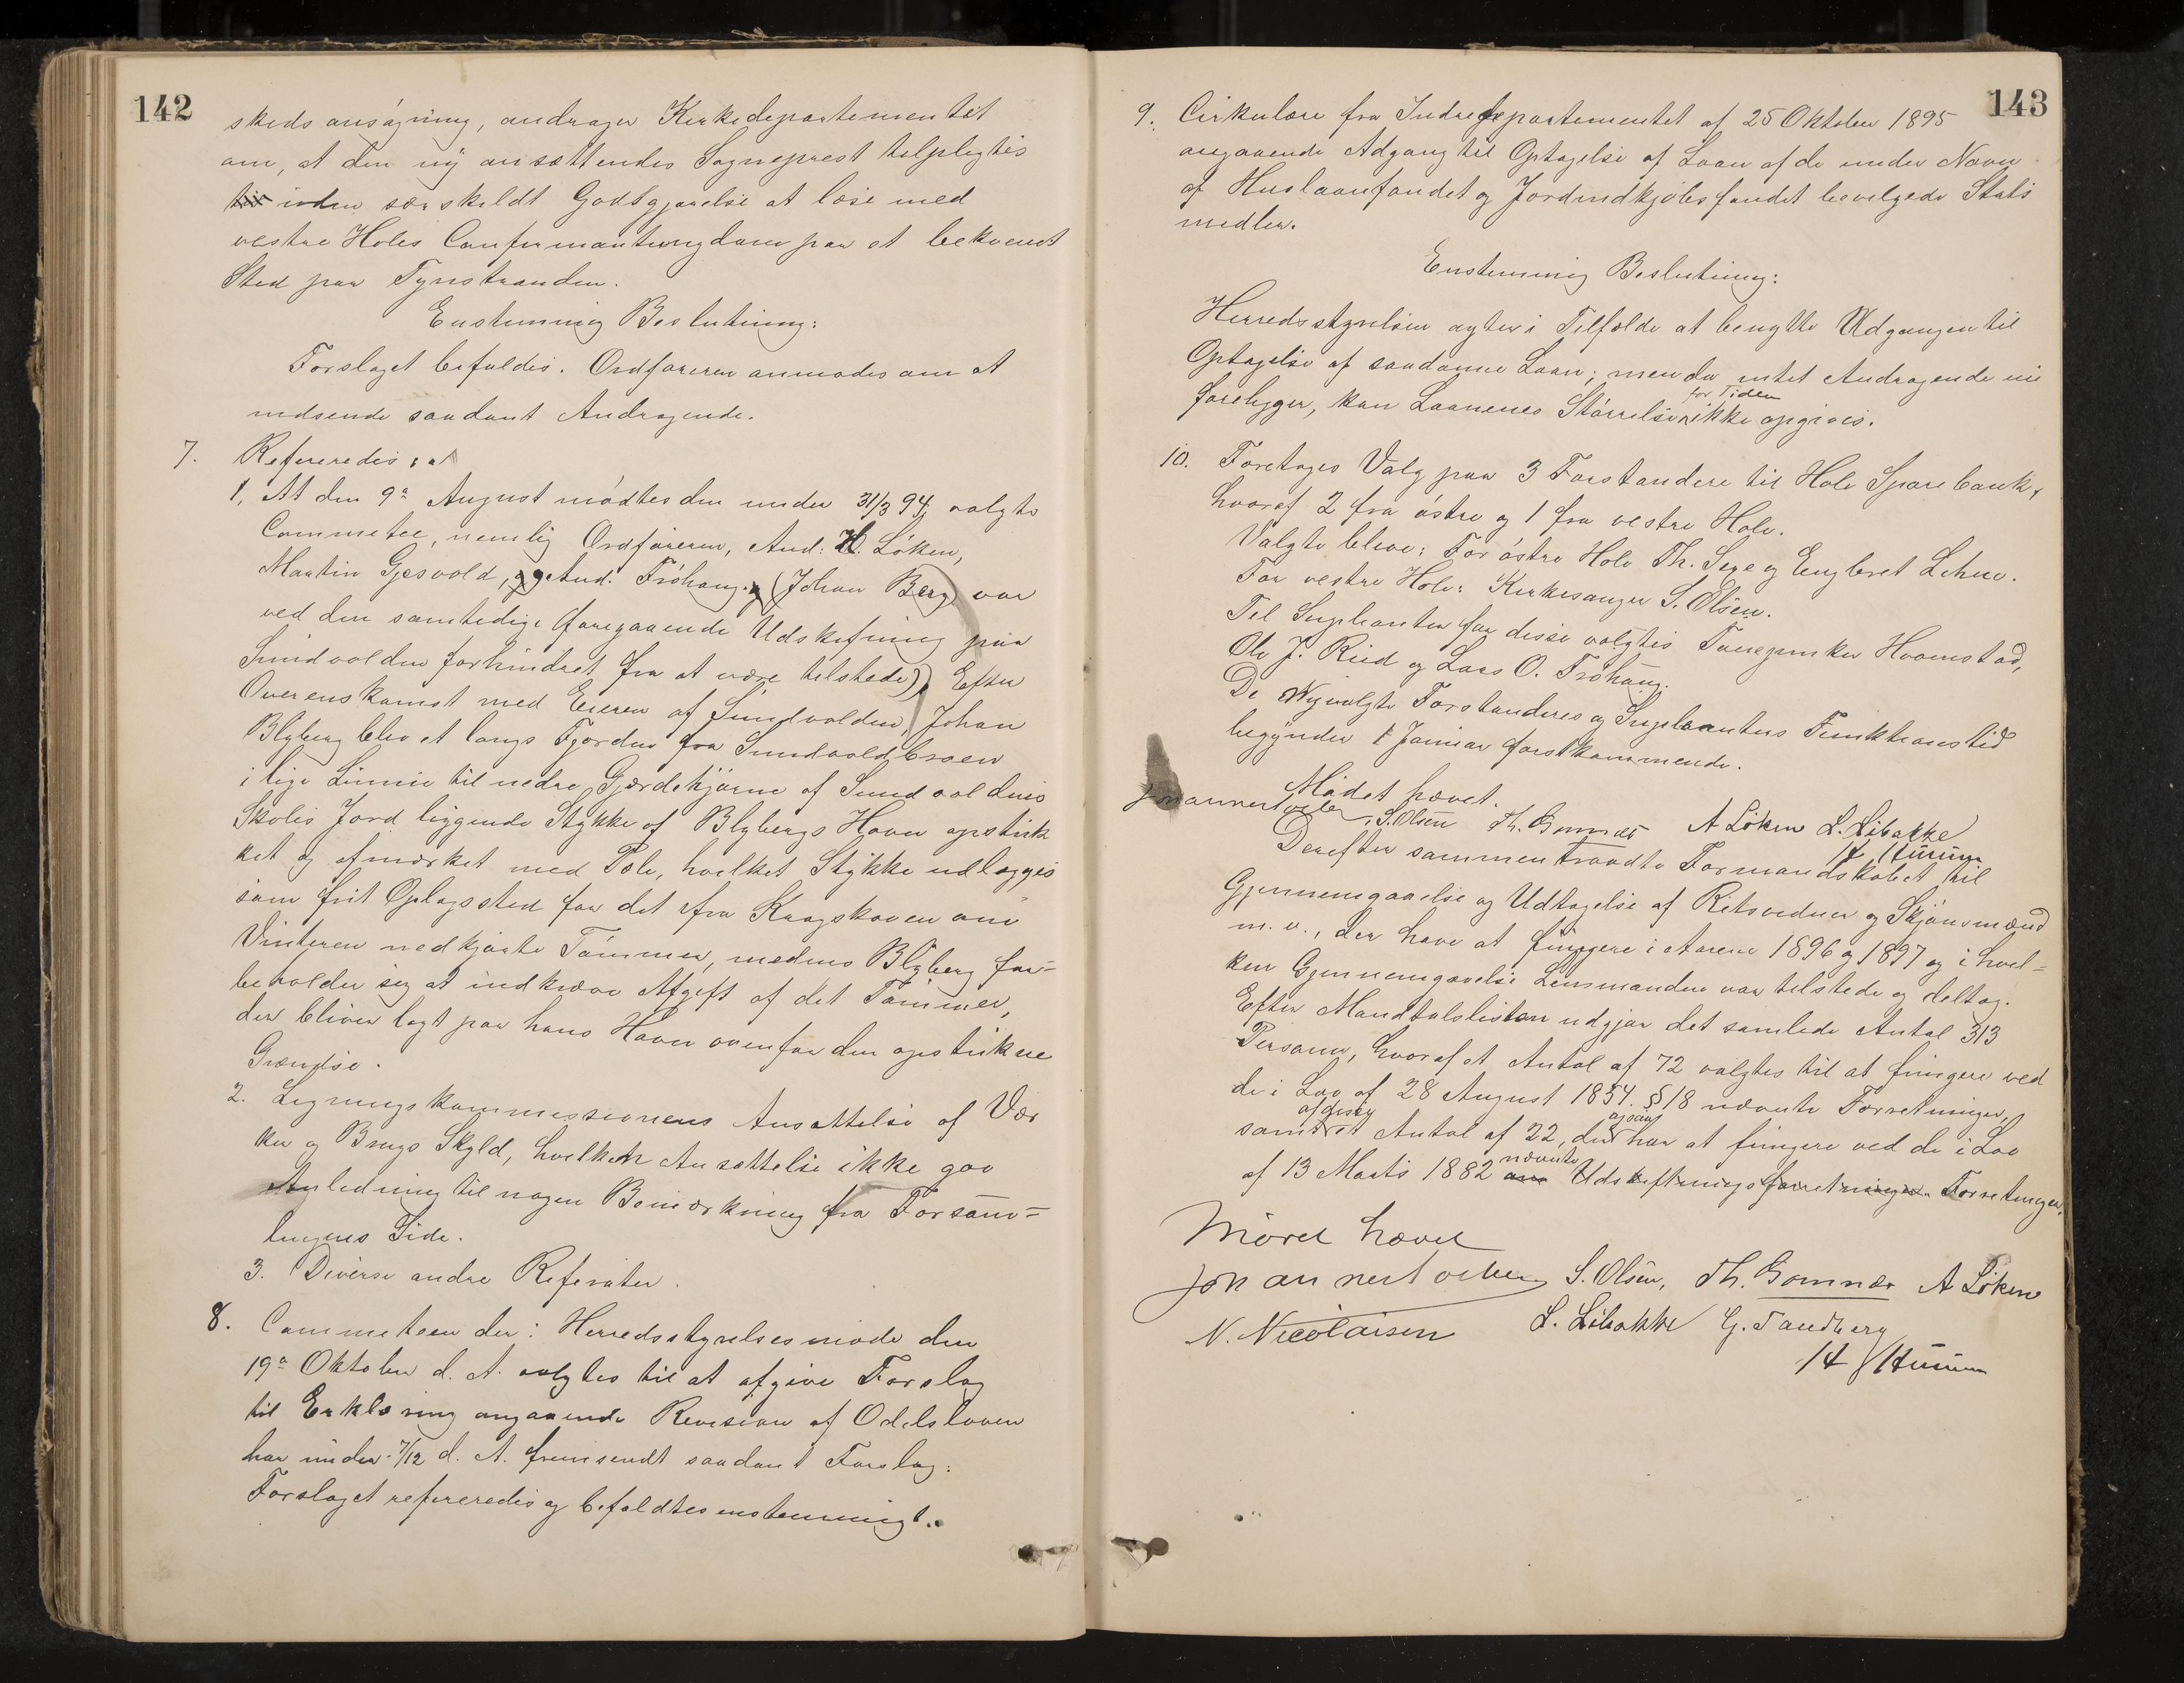 142
skedsansøgning, andrager Kirkedepartementet
om, at den ny ansættendes Sogneprest tilpligtes
til uden særskildt Godtgjørelse at læse med
vestre Holes Confirmantungdom paa et bekvemt
Sted paa Tyristranden.
Enstemmig Beslutning:
Forslaget bifaldes. Ordføreren anmodes om at
indsende saadant Andragende.
7. Refereredes: at
1, At den 9de August mødtes den under 31/3 94 valgte
Commetee, nemlig Ordføreren, And: H. Løken,
Martin Gjesvold, og And. Frøhaug. (Johan Berg var
ved den samtidige foregaaende Udskiftning paa
Sundvolden forhindret fra at være tilstede). Efter
Overenskomst med Eieren af Sundvolden, Johan
Blyberg blev et langs Fjorden fra Sundvoldbroen
i lige Linnie til nedre Gjærdehjørne af Sundvoldens
Skoles Jord liggende Stykke af Blybergs Havn opstik
ket og afmærket med Pæle, hvilket Stykke udlægges
som frit Oplagssted for det fra Krogskoven om
Vinteren nedkjørte Tømmer, medens Blyberg for-
beholder sig at indkræve Afgift af det Tømmer,
der bliver lagt paa hans Havn ovenfor den opstukne
Grændse.
2. Ligningskommissionens Ansættelse af Vær
ker og Brugs Skyld, hvilken Ansættelse ikke gav
Anledning til nogen Bemærkning fra Forsam-
lingens Side.
3. Diverse andre Referater.
8. Commeteen der i Herredsstyrelsesmøde den
19de Oktober d. A. valgtes til at afgive Forslag
til Erklæring angaaende Revision af Odelsloven
har under 7/12 d. A. fremsendt saadant Forslag:
Forslaget refereredes og bifaldtes enstemmigt.
143
9. Cirkulære fra Indredepartementet af 25 Oktober 1895
angaaende Adgang til Optagelse af Laan af de under Navn
af Huslaanfondet og Jordindkjøbsfondet bevilgede Stats
midler.
Enstemmig Beslutning:
Herredsstyrelsen agter i Tilfælde at benytte Adgangen til
Optagelse af saadanne Laan; men da intet Andragende nu
for Tiden
foreligger, kan Laanenes Størrelse ikke opgives.
10. Foretages Valg paa 3 Forstandere til Hole Sparebank,
hvoraf 2 fra østre og 1 fra vestre Hole.
Valgte bleve: For østre Hole Th. Sexe og Engebret Lehne.
For vestre Hole: Kirkesanger S. Olsen.
Til Suplianter for disse valgtes Hvamstad,
Ole J. Rud og Lars O. Frøhaug.
De Nyvalgte Forstanderes og Suplianters Funktionstid
begynder 1 Januar førstkommende.
Mødet hævet.
S. Olsen Th. Gomnæs A Løken L. Libakke
H Hurum
Derefter sammentraadte Formandskabet til
Gjennemgaaelse og Udtagelse af Retsvidner og Skjønsmænd
m. v., der have at fungere i Aarene 1896 og 1897 og i hvil-
ken Gjennemgaaelse Lensmanden var tilstede og deltog.
Efter Mandtalslisten udgjør det samlede Antal 313
Personer, hvoraf et Antal af 72 valgtes til at fungere ved
de i Lov af 28 August 1854. § 18 nævnte Forretninger,
af disse ogsaa
samt et Antal af 22, der har at fungere ved de i Lov
nævnte
af 13 Marts 1882 om Udskiftningsforretninger. Forretninger.
Mødet hævet
S. Olsen, Th. Gomnæs A Løken
N. Nicolaisen L. Libakke G. Sandberg
H Hurum